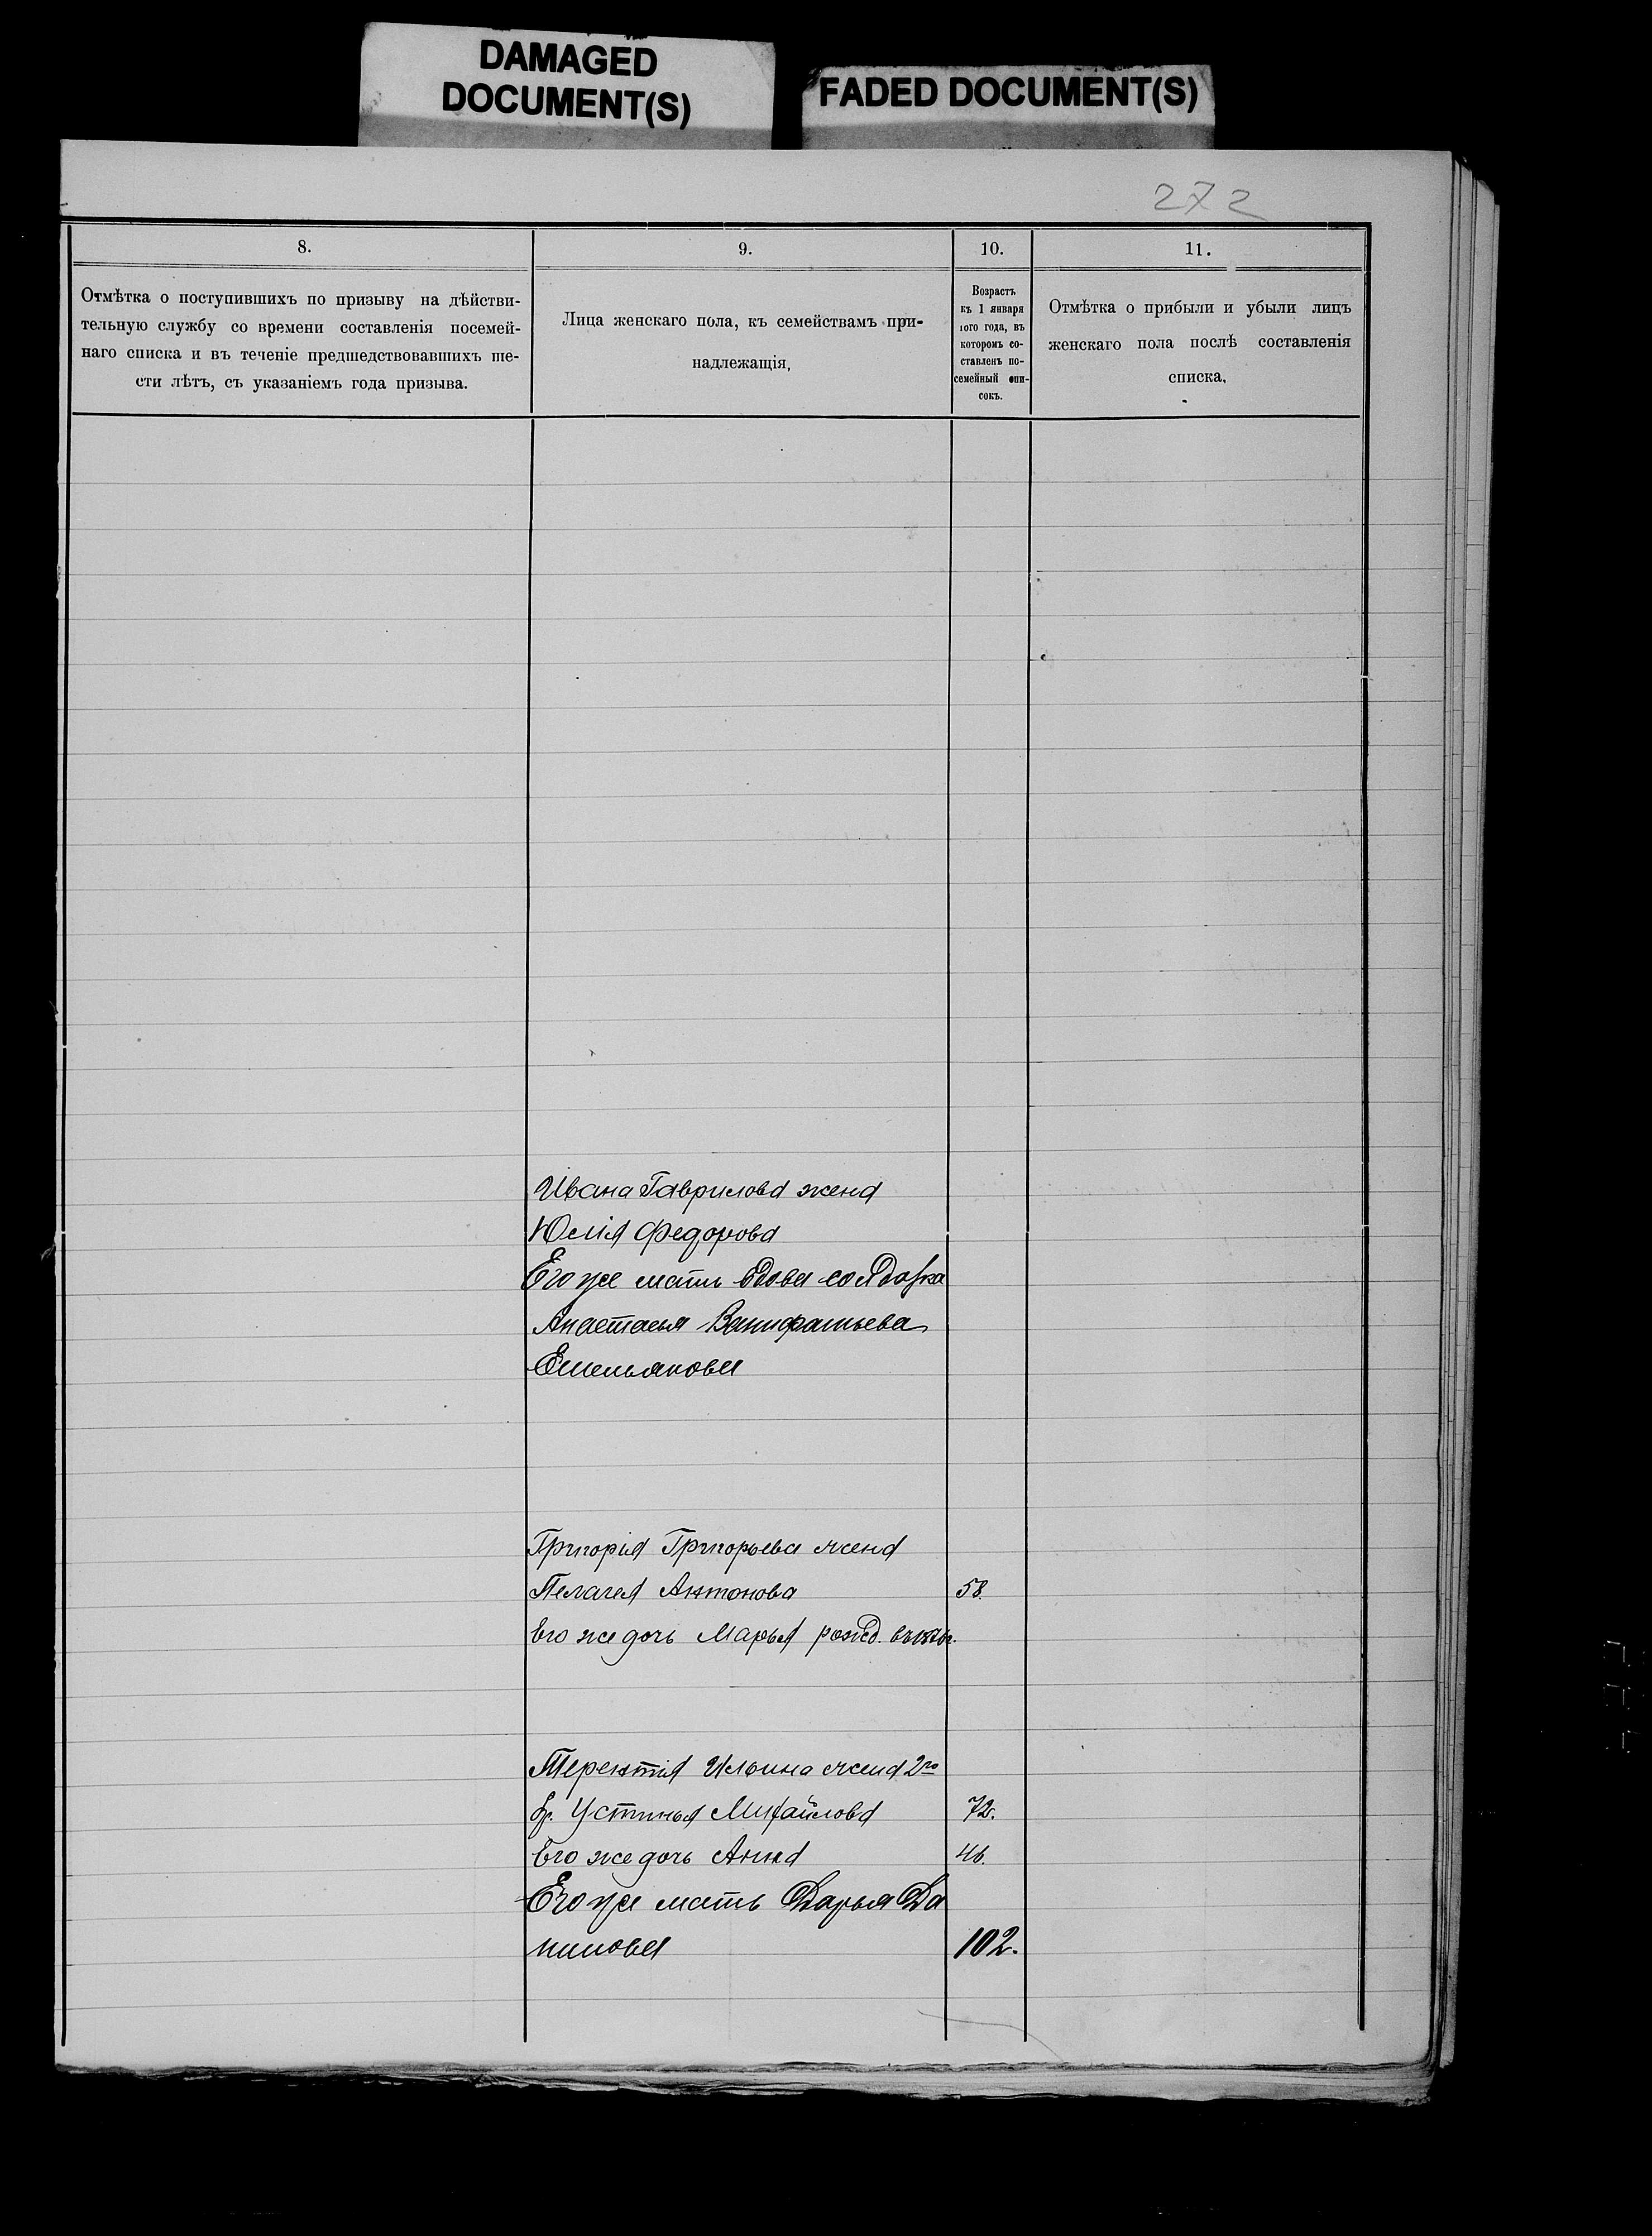 DAMAGED
DOCUMENT(S)
FADED DOCUMENT(S)
272
8.
Отмѣтка о поступившихъ по призыву на дѣйстви-
тельную службу со времени составленія посемей-
наго списка и въ теченіе предшедствовавшихъ ше-
сти лѣтъ, съ указаніемъ года призыва.
9.
Лица женскаго пола, къ семействамъ при-
надлежащія,
10.
Возрастъ
къ 1 января
того года, въ
которомъ со-
ставленъ по-
семейный спи-
сокъ.
11.
Отмѣтка о прибыли и убыли лицъ
женскаго пола послѣ составленія
списка,
Ивана Гаврилова жена
Юлія Федорова
Его же мать вдова солдатка
Анастасья Ванифатьева
Емельянова
Григорія Григорьева жена
Пелагея Антонова 58.
Его же дочь Марья рожд.
Терентія Ильина жена 2го
бр. Устинья Михайлова 72.
Его же дочь Анна 46.
Его же мать Дарья Да
нилова 102.